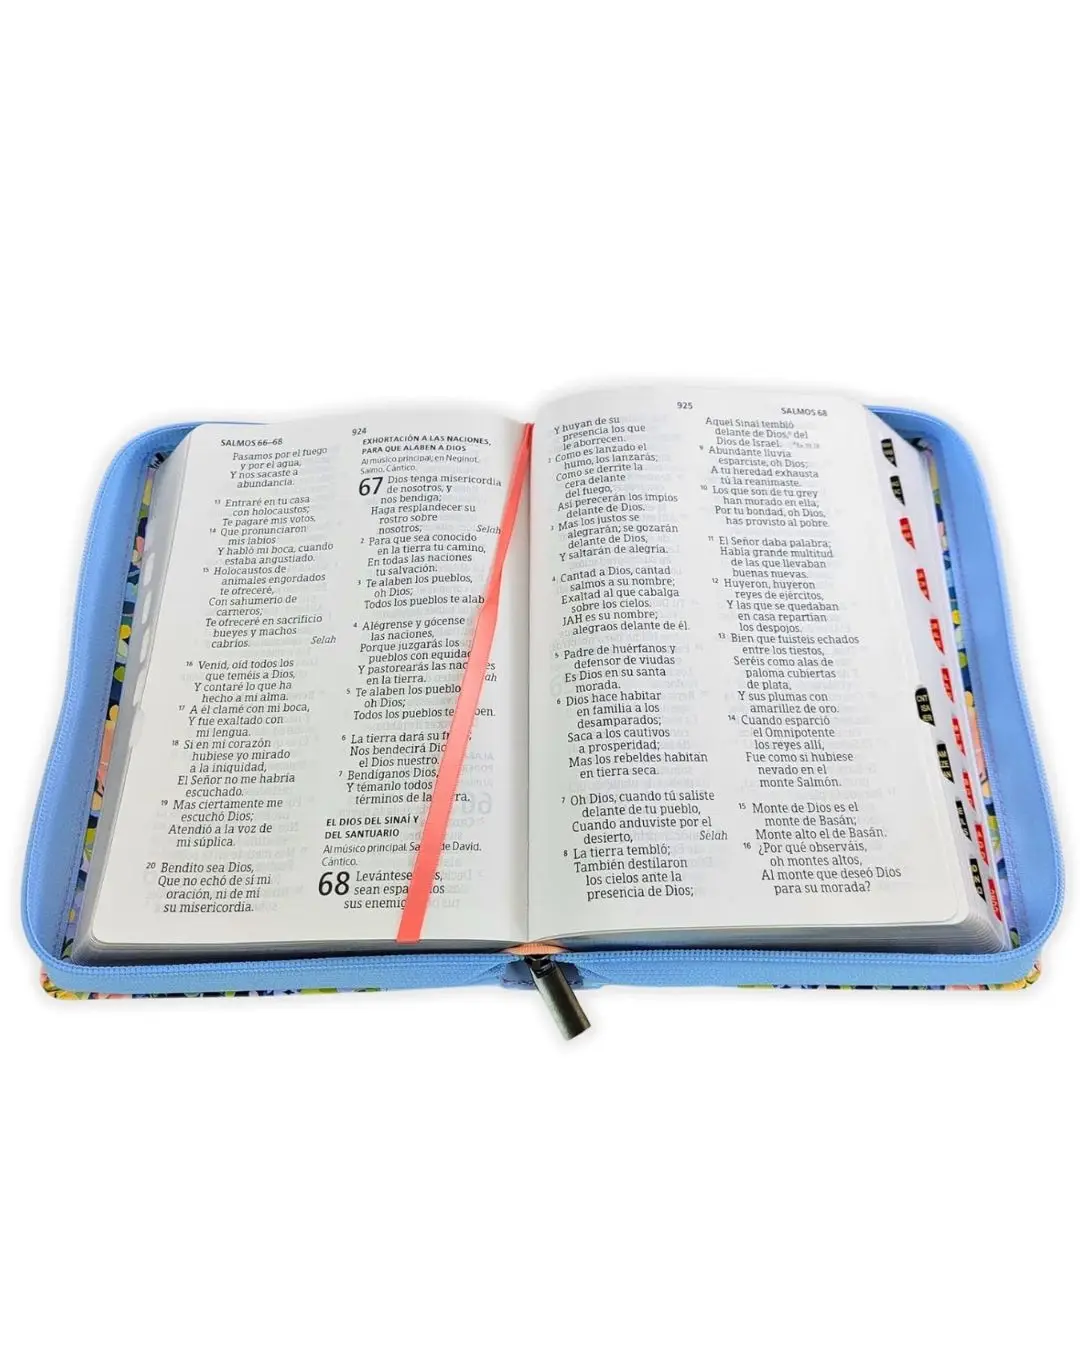 SALMOS 66–68
924
Pasamos por el fuego
y por el agua,
Y nos sacaste a
abundancia.
13 Entraré en tu casa
con holocaustos;
Te pagaré mis votos,
14 Que pronunciaron
mis labios
Y habló mi boca, cuando
estaba angustiado.
15 Holocaustos de
animales engordados
te ofreceré,
Con sahumerio de
carneros;
Te ofreceré en sacrificio
bueyes y machos
cabríos. Selah
16 Venid, oíd todos los
que teméis a Dios,
Y contaré lo que ha
hecho a mi alma.
17 A él clamé con mi boca,
Y fue exaltado con
mi lengua.
18 Si en mi corazón
hubiese yo mirado
a la iniquidad,
El Señor no me habría
escuchado.
19 Mas ciertamente me
escuchó Dios;
Atendió a la voz de
mi súplica.
20 Bendito sea Dios,
Que no echó de sí mi
oración, ni de mí
su misericordia.
EXHORTACIÓN A LAS NACIONES,
PARA QUE ALABEN A DIOS
Al músico principal; en Neginot.
Salmo. Cántico.
67 Dios tenga misericordia
de nosotros, y
nos bendiga;
Haga resplandecer su
rostro sobre
nosotros; Selah
2 Para que sea conocido
en la tierra tu camino,
En todas las naciones
tu salvación.
3 Te alaben los pueblos,
oh Dios;
Todos los pueblos te alab
4 Alégrense y gócense
las naciones,
Porque juzgarás los
pueblos con equidad
Y pastorearás las nac es
en la tierra. ah
5 Te alaben los pueblo
oh Dios;
Todos los pueblos te ben.
6 La tierra dará su f
Nos bendecirá Dio
el Dios nuestro.
7 Bendíganos Dios,
Y témanlo todos
términos de la rra.
EL DIOS DEL SINAÍ Y
DEL SANTUARIO
Al músico principal. Sa de David.
Cántico.
68 Levántese s,
sean espa os
sus enemig
925
SALMOS 68
Y huyan de su
presencia los que
le aborrecen.
2 Como es lanzado el
humo, los lanzarás;
Como se derrite la
cera delante
del fuego,
Así perecerán los impíos
delante de Dios.
3 Mas los justos se
alegrarán; se gozarán
delante de Dios,
Y saltarán de alegría.
4 Cantad a Dios, cantad
salmos a su nombre;
Exaltad al que cabalga
sobre los cielos.
JAH es su nombre;
alegraos delante de él.
5 Padre de huérfanos y
defensor de viudas
Es Dios en su santa
morada.
6 Dios hace habitar
en familia a los
desamparados;
Saca a los cautivos
a prosperidad;
Mas los rebeldes habitan
en tierra seca.
7 Oh Dios, cuando tú saliste
delante de tu pueblo,
Cuando anduviste por el
desierto, Selah
8 La tierra tembló;
También destilaron
los cielos ante la
presencia de Dios;
Aquel Sinaí tembló
delante de Dios, del
Dios de Israel.
9 Abundante lluvia
esparciste, oh Dios;
A tu heredad exhausta
tú la reanimaste.
10 Los que son de tu grey
han morado en ella;
Por tu bondad, oh Dios,
has provisto al pobre.
11 El Señor daba palabra;
Había grande multitud
de las que llevaban
buenas nuevas.
12 Huyeron, huyeron
reyes de ejércitos,
Y las que se quedaban
en casa repartían
los despojos.
13 Bien que fuisteis echados
entre los tiestos,
Seréis como alas de
paloma cubiertas
de plata,
Y sus plumas con
amarillez de oro.
14 Cuando esparció
el Omnipotente
los reyes allí,
Fue como si hubiese
nevado en el
monte Salmón.
15 Monte de Dios es el
monte de Basán;
Monte alto el de Basán.
16 ¿Por qué observáis,
oh montes altos,
Al monte que deseó Dios
para su morada?
CNT
ISA
JER